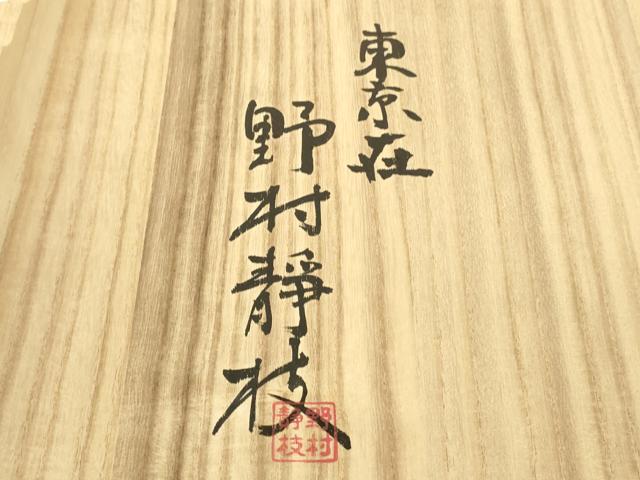 東京在
野村靜枝
野村
靜枝